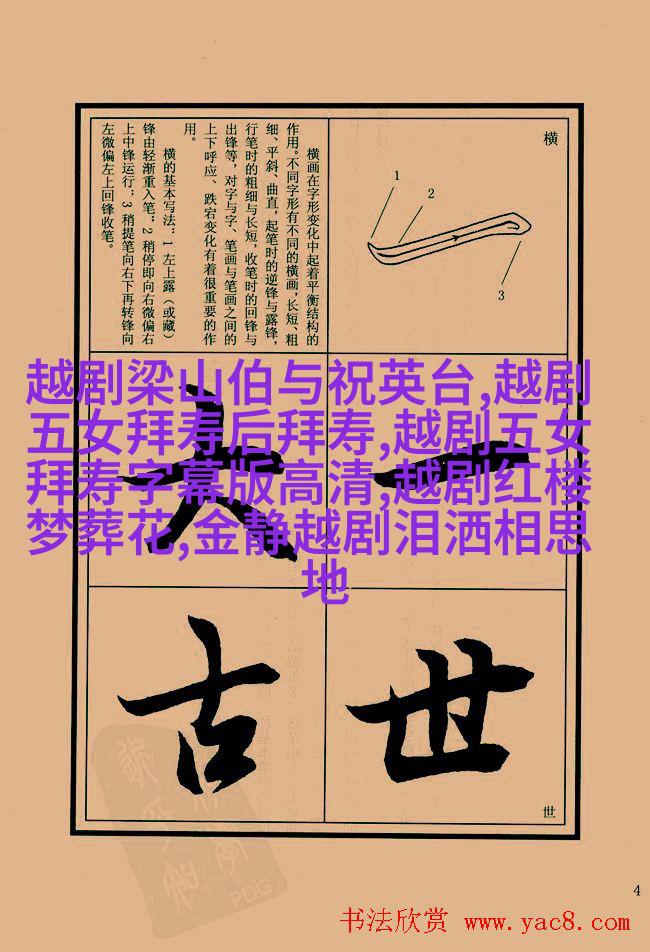 横
1
2
3
横画在字形变化中起着平衡结构的
作用。不同字形有不同的横画，长短、粗
细、平斜、曲直，起笔时的逆锋与露锋，
行笔时的粗细与长短，收笔时的回锋与
出锋等，对字与字、笔画与笔画之间的
上下呼应、跌宕变化有着很重要的作
用。
横的基本写法：1 左上露（或藏）
锋由轻渐重入笔；2 稍停即向右微偏右
上中锋运行；3 稍提笔向右下再转锋向
左微偏左上回锋收笔。
越剧梁山伯与祝英台,越剧
五女拜寿后拜寿,越剧五女
拜寿字幕版高清,越剧红楼
梦葬花,金静越剧泪洒相思
地
一
六
世
古
世
PDG
4
书法欣赏 www.yac8.com